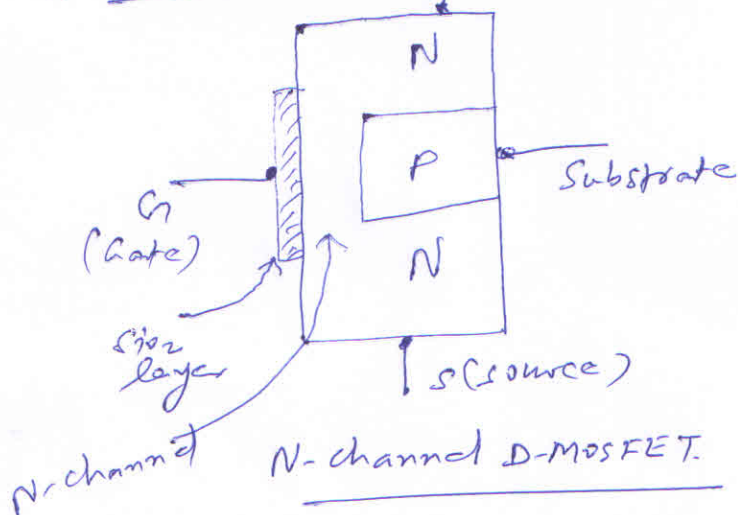 N
P
Substrate
G
(Gate)
N
SiO2
layer
S(source)
N-channel
N-channel D-MOSFET.